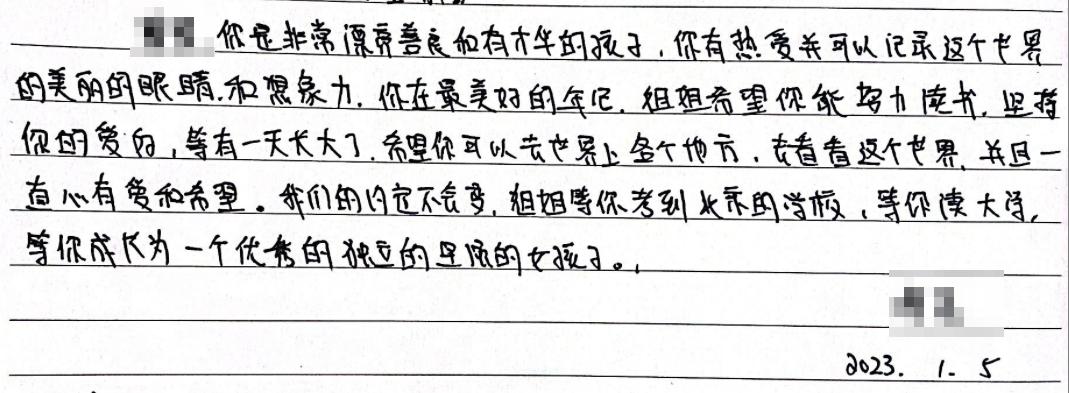 你是非常漂亮善良和有才华的孩子，你有热爱并可以记录这个世界
的美丽的眼睛，和想象力，你在最美好的年纪，姐姐希望你能努力读书，坚持
你的爱好，等有一天长大了，希望你可以去世界上各个地方，去看看这个世界，并且一
直心有爱和希望。我们的约定不会变，姐姐等你考到北京的学校，等你读大学，
等你成长为一个优秀的独立的坚强的女孩子。
2023. 1. 5